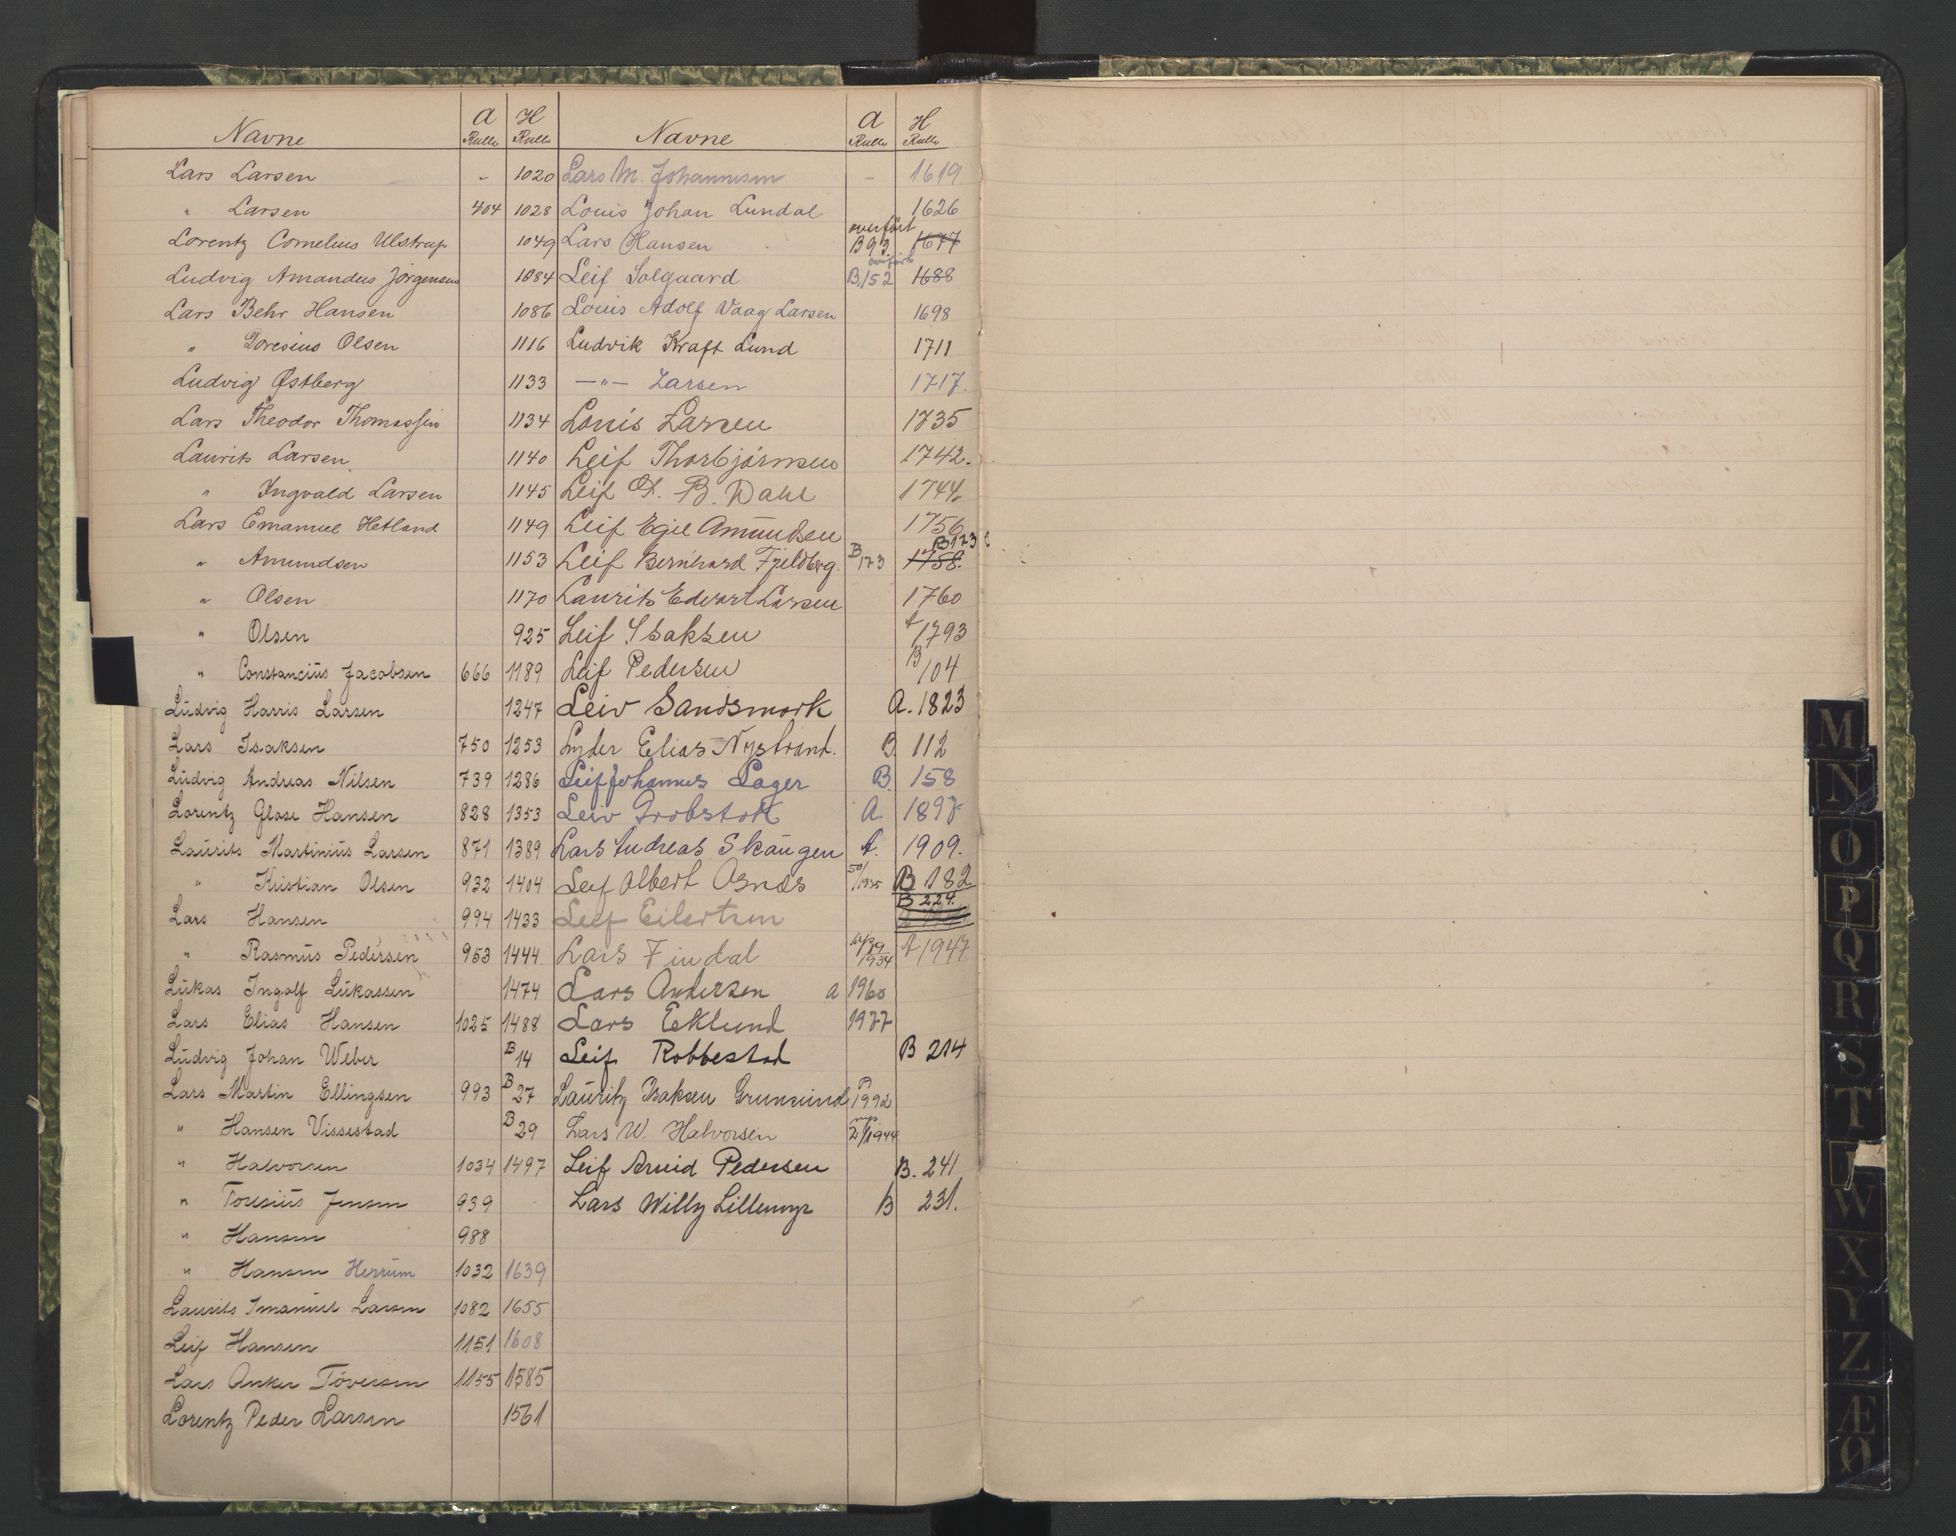 Navne A Rulle H Rulle
Lars Larsen - 1020
" Larsen 404 1028
Lorentz Cornelius Ulstrup 1049
Ludvig Amandus Jørgensen 1084
Lars Behr Hansen 1086
" Toresius Olsen 1116
Ludvig Østberg 1133
Lars Theodor Thomassen 1134
Laurits Larsen 1140
" Ingvald Larsen 1145
Lars Emanuel Hetland 1149
" Amundsen 1153
" Olsen 1170
" Olsen 925
" Constancius Jacobsen 666 1189
Ludvig Harris Larsen 1247
Lars Isaksen 750 1253
Ludvig Andreas Nilsen 739 1286
Lorentz Glose Hansen 828 1353
Laurits Martinius Larsen 871 1389
" Kristian Olsen 932 1404
Lars Hansen 994 1433
" Rasmus Pedersen 953 1444
Lukas Ingolf Lukassen 1474
Lars Elias Hansen 1025 1488
Ludvig Johan Weber B 14
Lars Martin Ellingsen 993 B 27
" Hansen Vissestad B 29
" Halvorsen 1034 1497
" Toresius Jensen 939
" Hansen 988
" Hansen Herrum 1032 1639
Laurits Imanuel Larsen 1082 1655
Leif Hansen 1151 1608
Lars Anker Töversen 1155 1585
Lorentz Peder Larsen 1561
Navne A Rulle H Rulle
Lars M. Johannesen - 1619
Louis Johan Lundal 1626
Lars Hansen overført B 93 1677
Leif Solgaard overført B.152 1688
Louis Adolf Vaag Larsen 1698
Ludvik Kraft Lund 1711
—"— Larsen 1717.
Louis Larsen 1735
Leif Thorbjörnsen 1742.
Leif O. B. Dahl 1744
Leif Egil Amundsen 1756
Leif Bernhard Fjeldberg. B 173 1758. B 173
Laurits Edvart Larsen 1760
Leif Isaksen A 1793
Leif Pedersen B 104
Leiv Sandsmork A. 1823
Lyder Elias Nystrand. B 112
Leif Johannes Lager B. 158
Leiv Grobstok A. 1897
Lars Andreas Skaugen A. 1909.
Leif Albert Osnes B 182
Leif Eilertsen B 224.
Lars Findal 1934 A 1947
Lars Andersen A 1960
Lars Ecklund 1977
Leif Robbestad B 214
Lauritz Isaksen Grumsund A 1992
Lars W. Halvorsen
Leif Arvid Pedersen B. 241
Lars Willy Lillemyr B 231.
M
N
O
P
Q
R
S
T
W
X
Y
Z
Æ
Ø